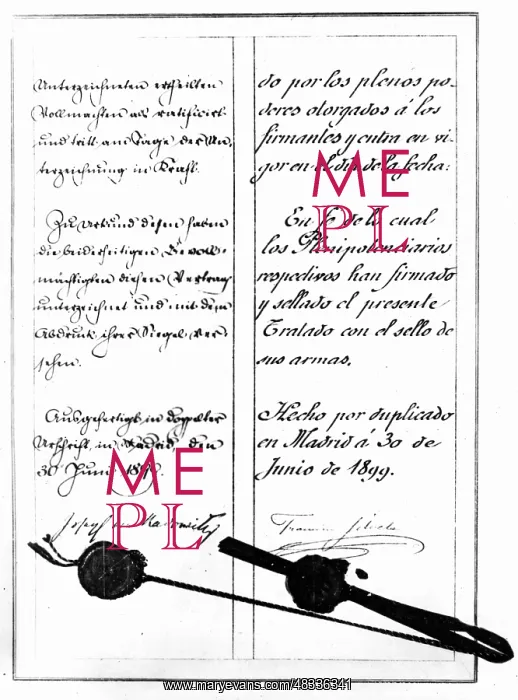 Unterzeichneten ertheilten
Vollmachten als ratificirt
und tritt am Tage der Un-
terzeichnung in Kraft.
Zu Urkund dessen haben
die beiderseitigen Bevoll-
mächtigten diesen Vertrag
unterzeichnet und mit dem
Abdruck ihrer Siegel ver-
sehen.
Ausgefertigt in doppelter
Urschrift, in Madrid, den
30 Juni 1899.
Joseph von Radowitz
do por los plenos po-
deres otorgados á los
firmantes y entra en vi-
gor en el dia de la fecha.
En fe de lo cual
los Plenipotenciarios
respectivos han firmado
y sellado el presente
Tratado con el sello de
sus armas.
Hecho por duplicado
en Madrid á 30 de
Junio de 1899.
Francisco Silvela
ME
PL
ME
PL
www.maryevans.com/48336341